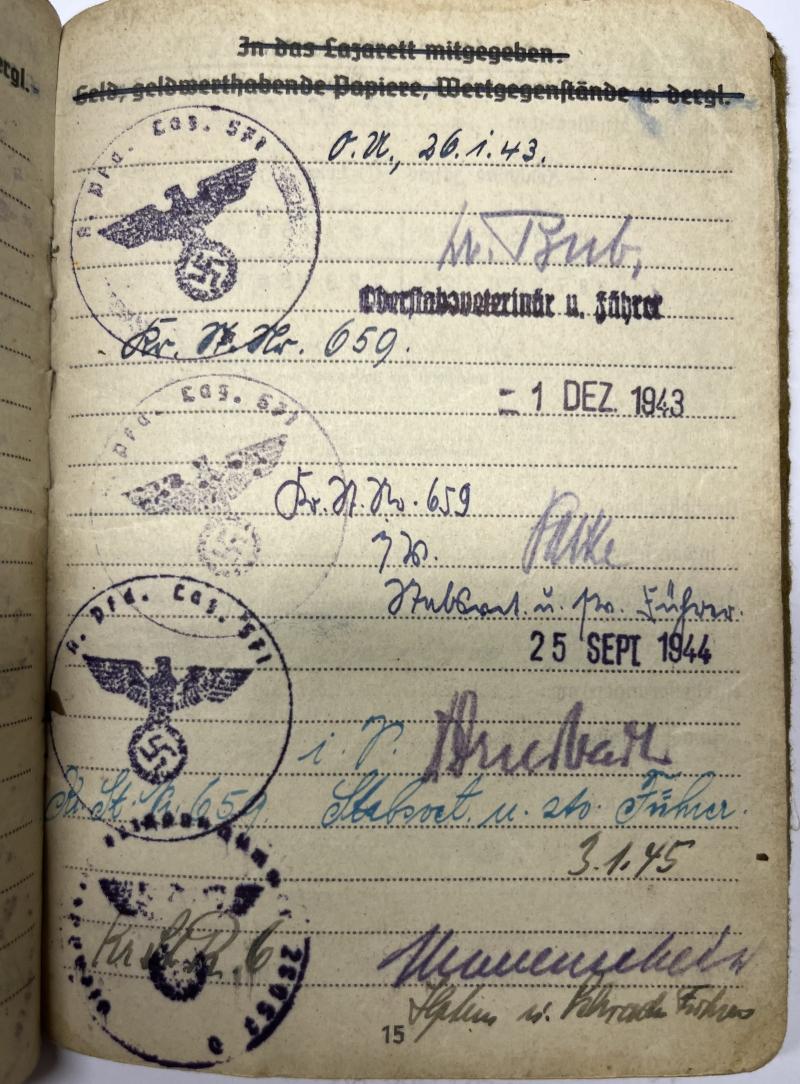 ergl.
In das Lazarett mitgegeben.
Geld, geldwerthabende Papiere, Wertgegenstände u. dergl.
A. Pfd. Laz. 571
O.U., 26.1.43.
Dr. Bub,
Oberstabsveterinär u. Führer
Kr. St. Nr. 659.
- 1 DEZ. 1943
Pfd. Laz. 571
Kr. St. Nr. 659
Stabsvet. u. stv. Führer.
25 SEPT 1944
A. Pfd. Laz. 571
i. V.
Kr. St. N. 659. Stabsvet. u. stv. Führer.
3.1.45
Kr St N. 6
26053 D
u.
15